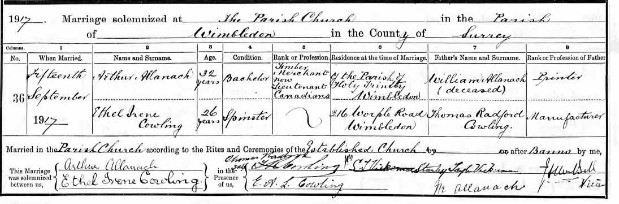 1917 Marriage solemnized at The Parish Church in the Parish
of Wimbledon in the County of Surrey
Columns. 1 2 3 4 5 6 7 8
No. When Married. Name and Surname. Age. Condition. Rank or Profession. Residence at the time of Marriage. Father's Name and Surname. Rank or Profession of Father
36
Fifteenth
September
1917
Arthur Allanach
32
years
Bachelor
Timber
Merchant
now
Lieutenant
Canadians
of the Parish of
Holy Trinity
Wimbledon
William Allanach
(deceased)
Printer
Ethel Irene
Cowling
26
years
Spinster
216 Worple Road
Wimbledon
Thomas Radford
Cowling.
Manufacturer
Married in the Parish Church according to the Rites and Ceremonies of the Established Church by or after Banns by me,
This Marriage
was solemnized
between us,
Arthur Allanach
Ethel Irene Cowling
in the
Presence
of us,
Thomas Radford
Cowling
E. A. L. Cowling
Allanach
Vicar